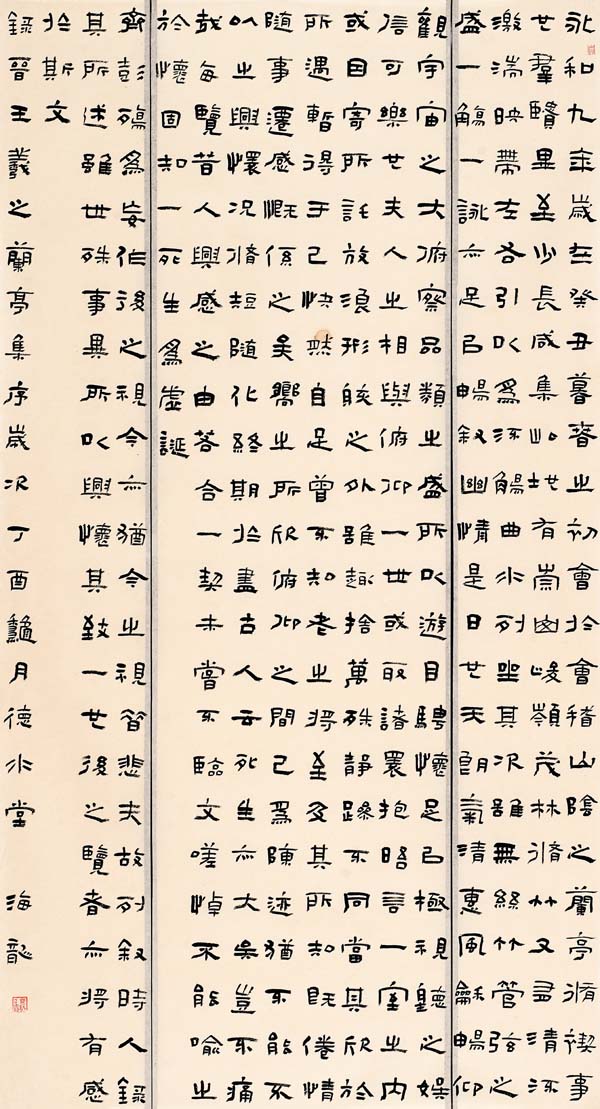 永和九年歲在癸丑暮春之初會於會稽山陰之蘭亭脩禊事
也羣賢畢至少長咸集此地有崇山峻嶺茂林脩竹又有清流
激湍映帶左右引以為流觴曲水列坐其次雖無絲竹管弦之
盛一觴一詠亦足以暢敘幽情是日也天朗氣清惠風龢暢仰
觀宇宙之大俯察品類之盛所以遊目騁懷足以極視聽之娛
信可樂也夫人之相與俯仰一世或取諸懷抱晤言一室之內
或因寄所託放浪形骸之外雖趣捨萬殊靜躁不同當其欣於
所遇暫得于己快然自足曾不知老之將至及其所知既倦情
隨事遷感慨係之矣嚮之所欣俯仰之間已為陳迹猶不能不
以之興懷況脩短隨化終期於盡古人云死生亦大矣豈不痛
哉每覽昔人興感之由若合一契未嘗不臨文嗟悼不能喻之
於懷固知一死生為虛誕
齊彭殤為妄作後之視今亦猶今之視昔悲夫故列敘時人錄
其所述雖世殊事異所以興懷其致一也後之覽者亦將有感
於斯文
錄晉王羲之蘭亭集序歲次丁酉龝月德水堂 海龍